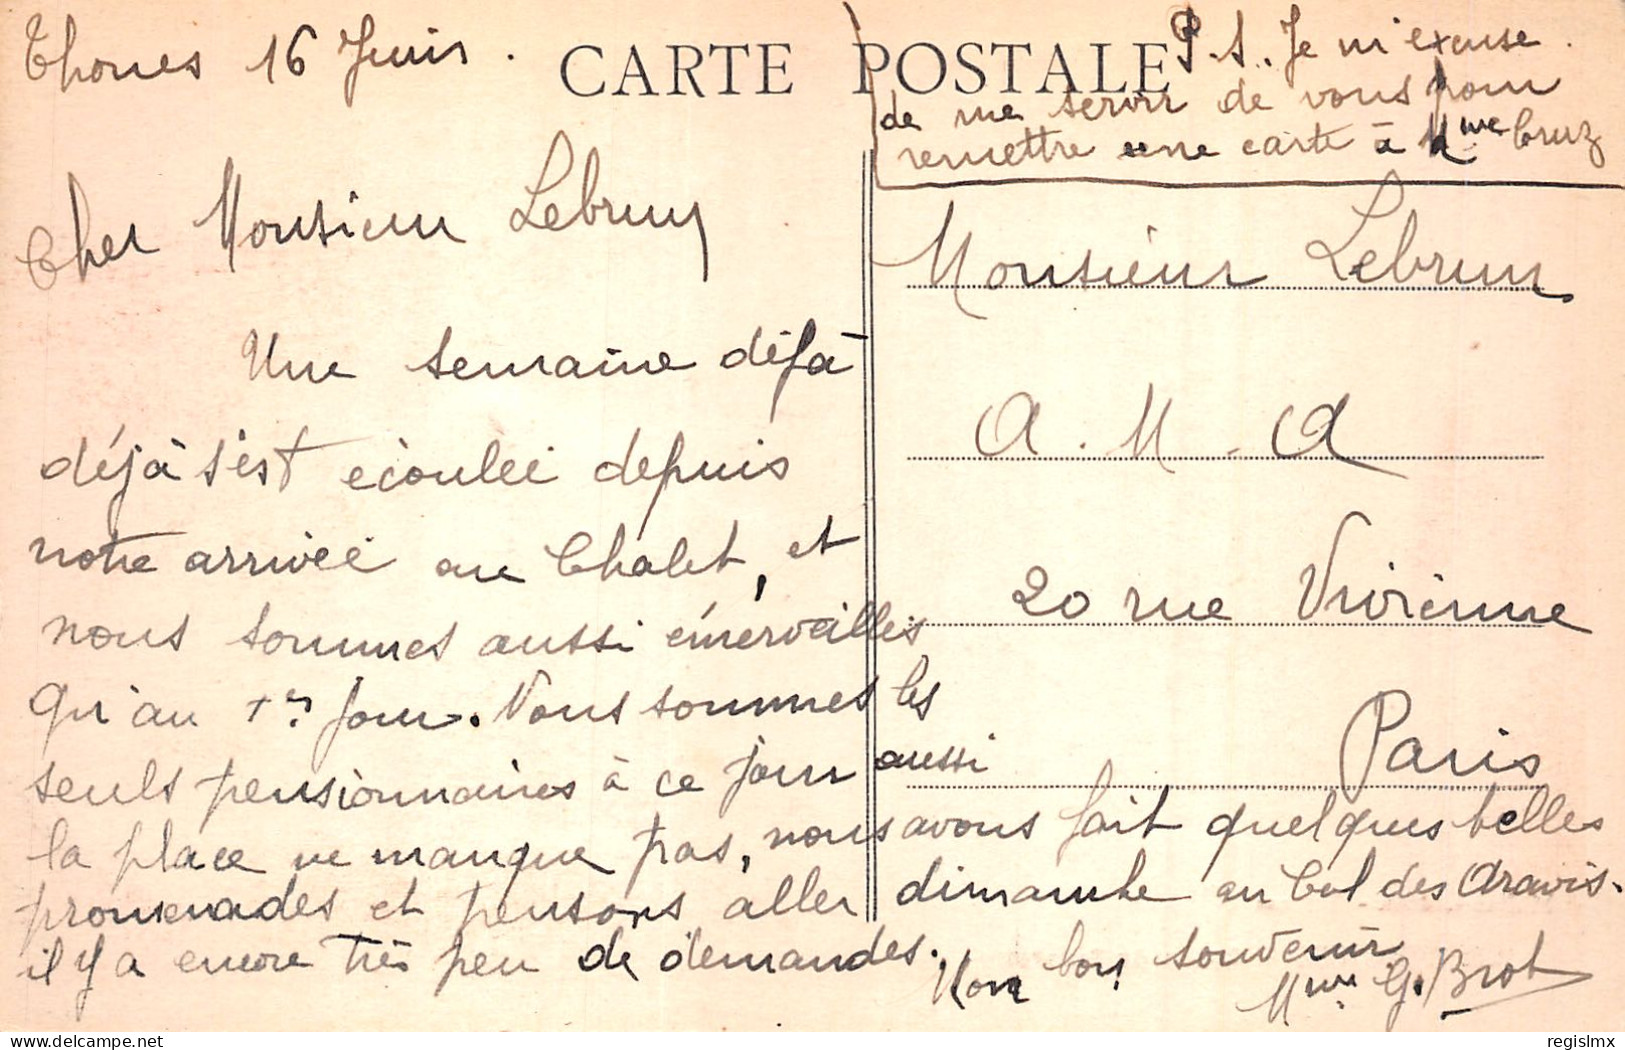 Thones 16 Juin.
CARTE POSTALE
P.S. Je m'excuse
de me servir de vous pour
remettre une carte à Mme Cruz
Cher Monsieur Lebrun
Une semaine déjà
déjà s'est écoulée depuis
notre arrivée au Chalet, et
nous sommes aussi émerveillés
qu'au 1er jour. Nous sommes les
seuls pensionnaires à ce jour aussi
la place ne manque pas, nous avons fait quelques belles
promenades et pensons aller dimanche au Col des Aravis.
il y a encore très peu de demandes.
Mon bon souvenir
Mme G. Brot
Monsieur Lebrun
A. M. A
20 rue Vivienne
Paris
regislmx